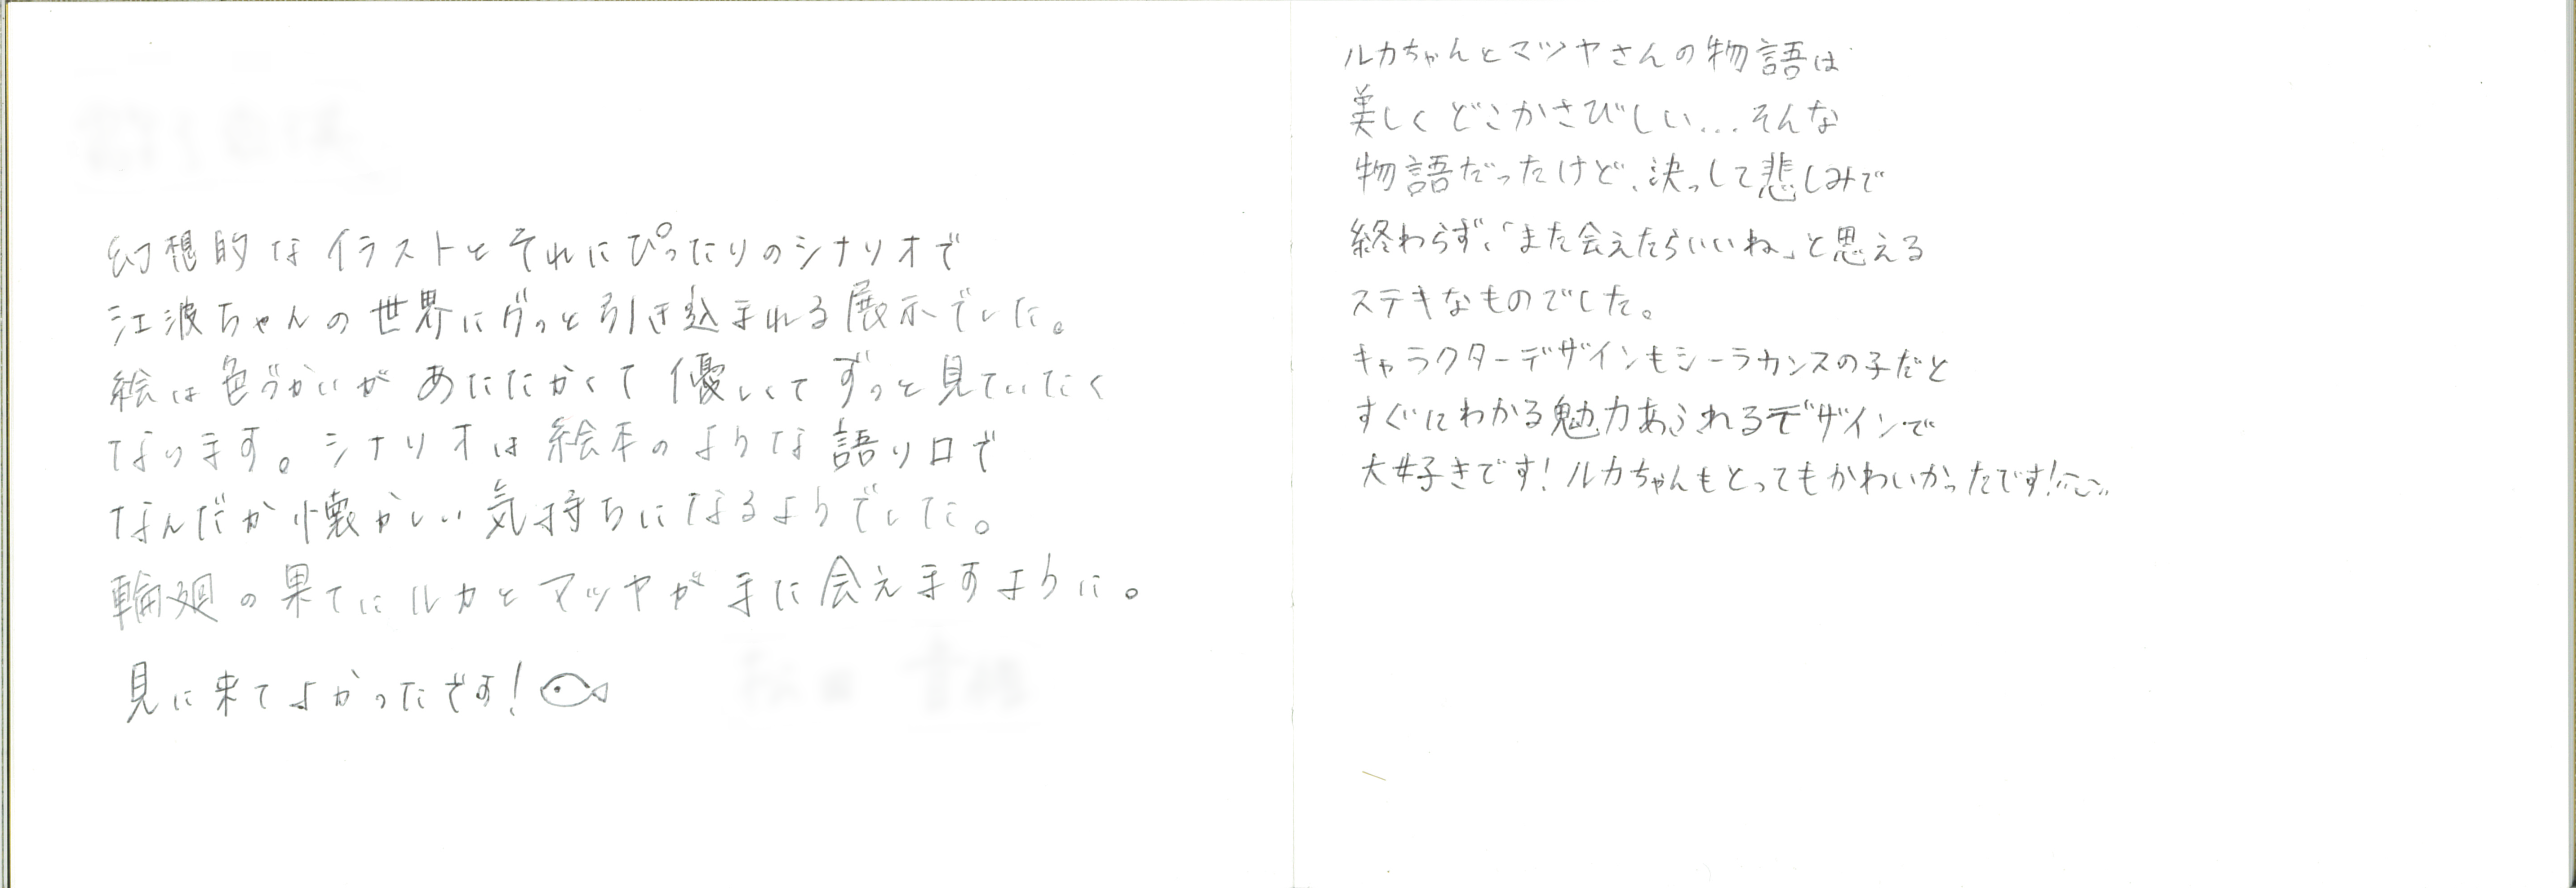 幻想的なイラストとそれにぴったりのシナリオで
江波ちゃんの世界にグっと引き込まれる展示でした。
絵は色づかいがあたたかくて優しくてずっと見ていたく
なります。シナリオは絵本のような語り口で
なんだか懐かしい気持ちになるようでした。
輪廻の果てにルカとマツヤがまた会えますように。
見に来てよかったです!
ルカちゃんとマツヤさんの物語は
美しくどこかさびしい...そんな
物語だったけど、決っして悲しみで
終わらず、「また会えたらいいね」と思える
ステキなものでした。
キャラクターデザインもシーラカンスの子だと
すぐにわかる魅力あふれるデザインで
大好きです!ルカちゃんもとってもかわいかったです!